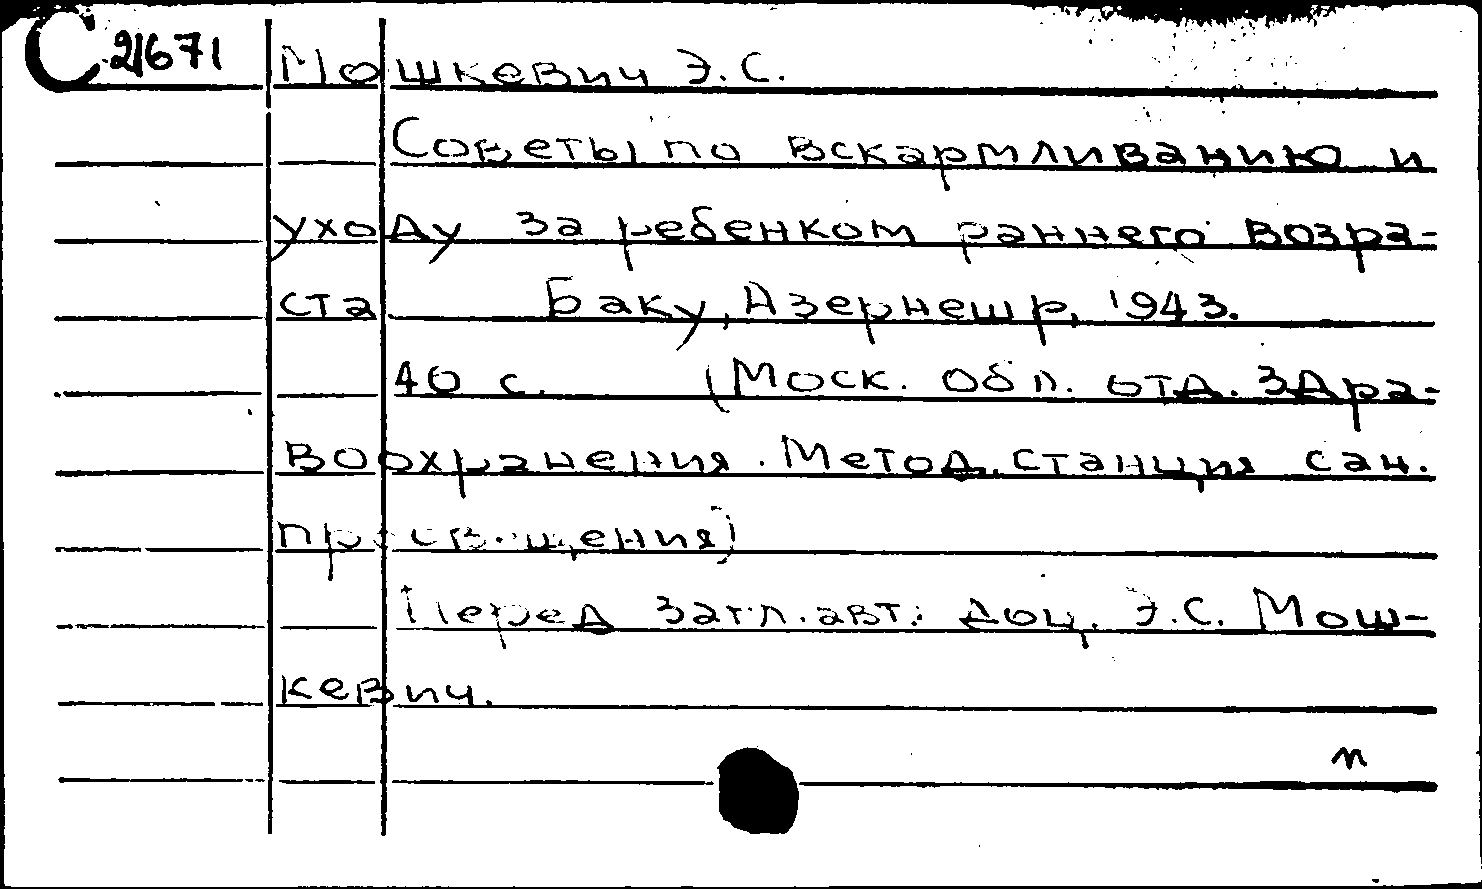 С 21671
Мошкевич Э.С.
Советы по вскармливанию и
уходу за ребенком раннего возра-
ста Баку, Азернешр, 1943.
40 с. (Моск. обл. отд. здра-
воохранения. Метод. станция сан.
просвещения)
Перед загл. авт.: доц. Э.С. Мош-
кевич.
п